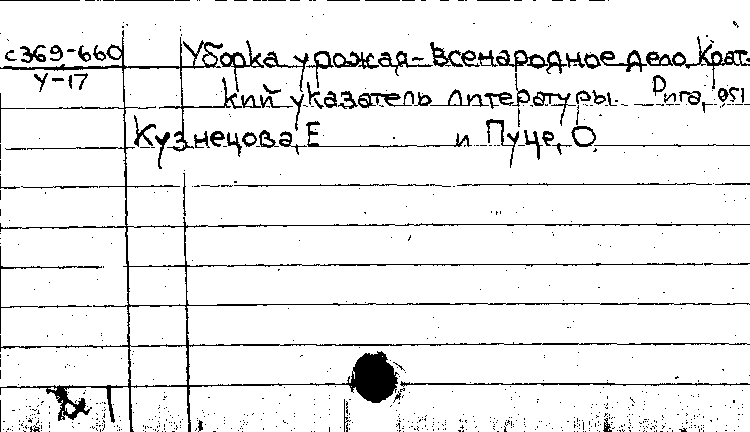 с369-660
У-17
Уборка урожая-всенародное дело. Крат-
кий указатель литературы. Рига, 951
Кузнецова, Е и Пуце, О.